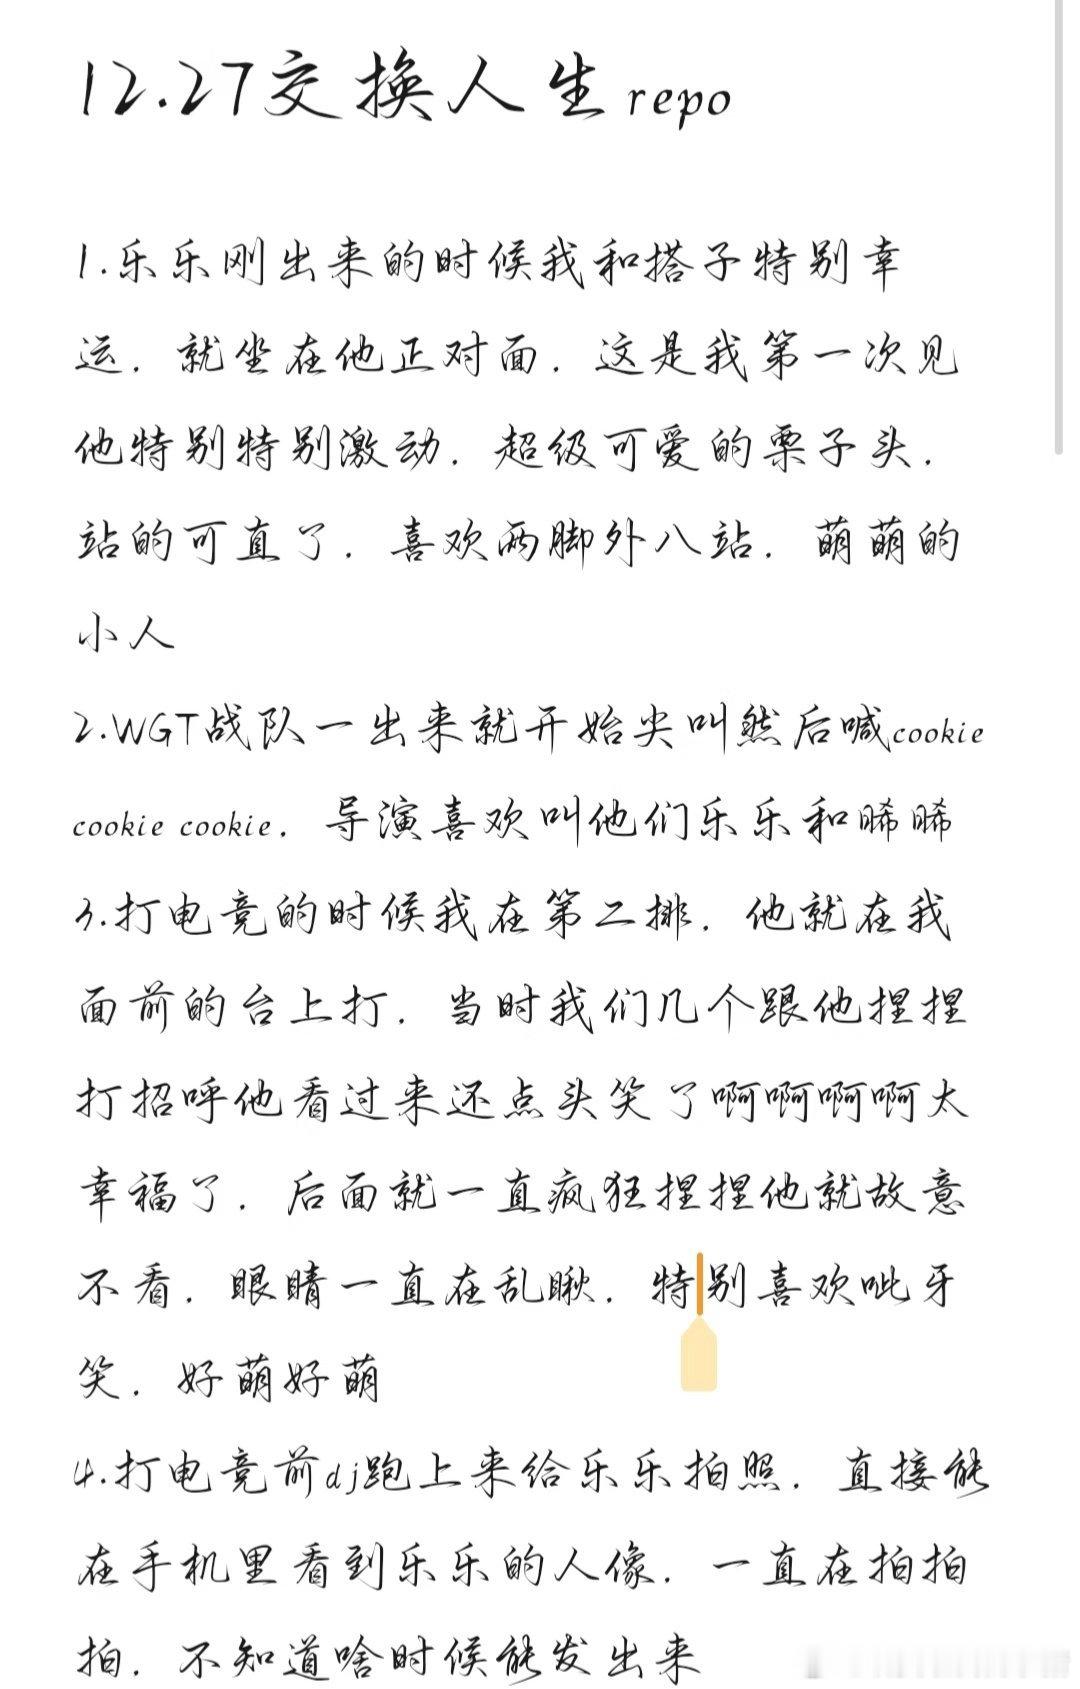 12.27交换人生repo
1.乐乐刚出来的时候我和搭子特别幸
运. 就坐在他正对面. 这是我第一次见
他特别特别激动. 超级可爱的栗子头.
站的可直了. 喜欢两脚外八站. 萌萌的
小人
2.WGT战队一出来就开始尖叫然后喊cookie
cookie cookie. 导演喜欢叫他们乐乐和晞晞
3.打电竞的时候我在第二排. 他就在我
面前的台上打. 当时我们几个跟他捏捏
打招呼他看过来还点头笑了啊啊啊啊太
幸福了. 后面就一直疯狂捏捏他就故意
不看. 眼睛一直在乱瞅. 特别喜欢呲牙
笑. 好萌好萌
4.打电竞前dj跑上来给乐乐拍照. 直接能
在手机里看到乐乐的人像. 一直在拍拍
拍. 不知道啥时候能发出来